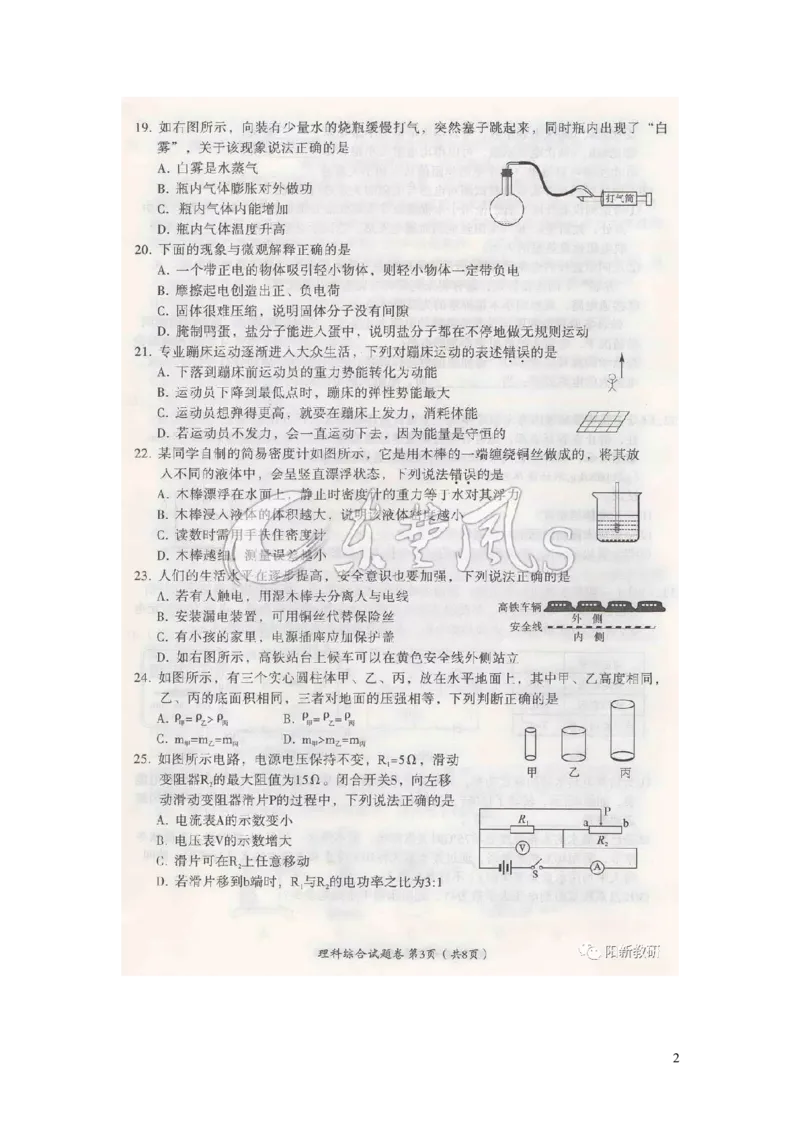 19. 如右图所示，向装有少量水的烧瓶缓慢打气，突然塞子跳起来，同时瓶内出现了“白
雾”，关于该现象说法正确的是
A. 白雾是水蒸气
B. 瓶内气体膨胀对外做功
C. 瓶内气体内能增加
D. 瓶内气体温度升高
打气筒
20. 下面的现象与微观解释正确的是
A. 一个带正电的物体吸引轻小物体，则轻小物体一定带负电
B. 摩擦起电创造出正、负电荷
C. 固体很难压缩，说明固体分子没有间隙
D. 腌制鸭蛋，盐分子能进入蛋中，说明盐分子都在不停地做无规则运动
21. 专业蹦床运动逐渐进入大众生活，下列对蹦床运动的表述错误的是
A. 下落到蹦床前运动员的重力势能转化为动能
B. 运动员下降到最低点时，蹦床的弹性势能最大
C. 运动员想弹得更高，就要在蹦床上发力，消耗体能
D. 若运动员不发力，会一直运动下去，因为能量是守恒的
22. 某同学自制的简易密度计如图所示，它是用木棒的一端缠绕铜丝做成的，将其放
入不同的液体中，会呈竖直漂浮状态，下列说法错误的是
A. 木棒漂浮在水面上，静止时密度计的重力等于水对其浮力
B. 木棒浸入液体的体积越大，说明该液体密度越小
C. 读数时需用手扶住密度计
D. 木棒越细，测量误差越小
23. 人们的生活水平在逐步提高，安全意识也要加强，下列说法正确的是
A. 若有人触电，用湿木棒去分离人与电线
B. 安装漏电装置，可用铜丝代替保险丝
C. 有小孩的家里，电源插座应加保护盖
D. 如右图所示，高铁站台上候车可以在黄色安全线外侧站立
高铁车辆
外 侧
安全线
内 侧
24. 如图所示，有三个实心圆柱体甲、乙、丙，放在水平地面上，其中甲、乙高度相同，
乙、丙的底面积相同，三者对地面的压强相等，下列判断正确的是
A. ρ甲=ρ乙>ρ丙 B. ρ甲=ρ乙=ρ丙
C. m甲=m乙=m丙 D. m甲>m乙=m丙
甲 乙 丙
25. 如图所示电路，电源电压保持不变，R₁=5Ω，滑动
变阻器R₂的最大阻值为15Ω。闭合开关S，向左移
动滑动变阻器滑片P的过程中，下列说法正确的是
A. 电流表A的示数变小
B. 电压表V的示数增大
C. 滑片可在R₂上任意移动
D. 若滑片移到b端时，R₁与R₂的电功率之比为3:1
P
R₁ a b
V R₂
S A
理科综合试题卷 第3页（共8页）
阳新教研
2